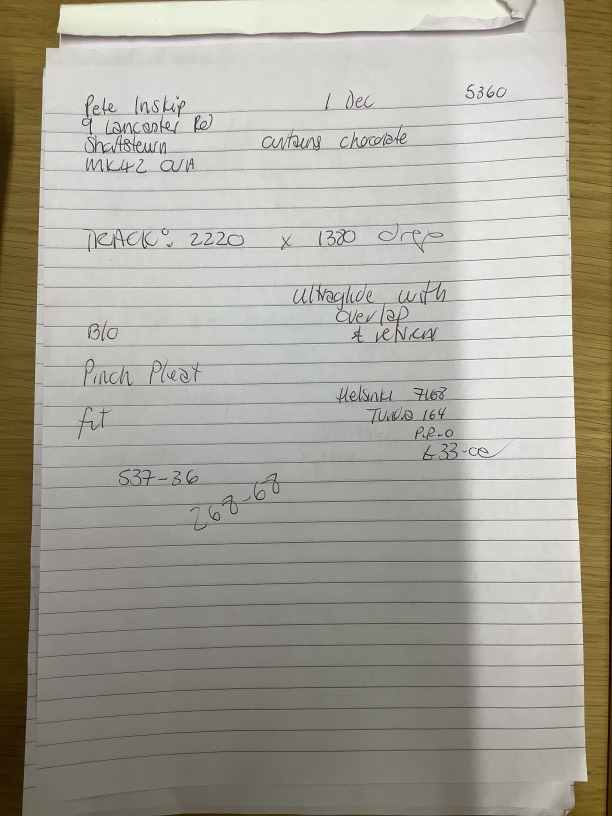 Pete Inskip 1 Dec 5360
9 Lancaster Rd
curtains chocolate
MK42
TRACK: 2220 x 1380 drop
Ultraglide with
overlap
B/O & return
Pinch Pleat
Helsinki 7168
fit 164
P&P-0
£33-00
537-36
268-68